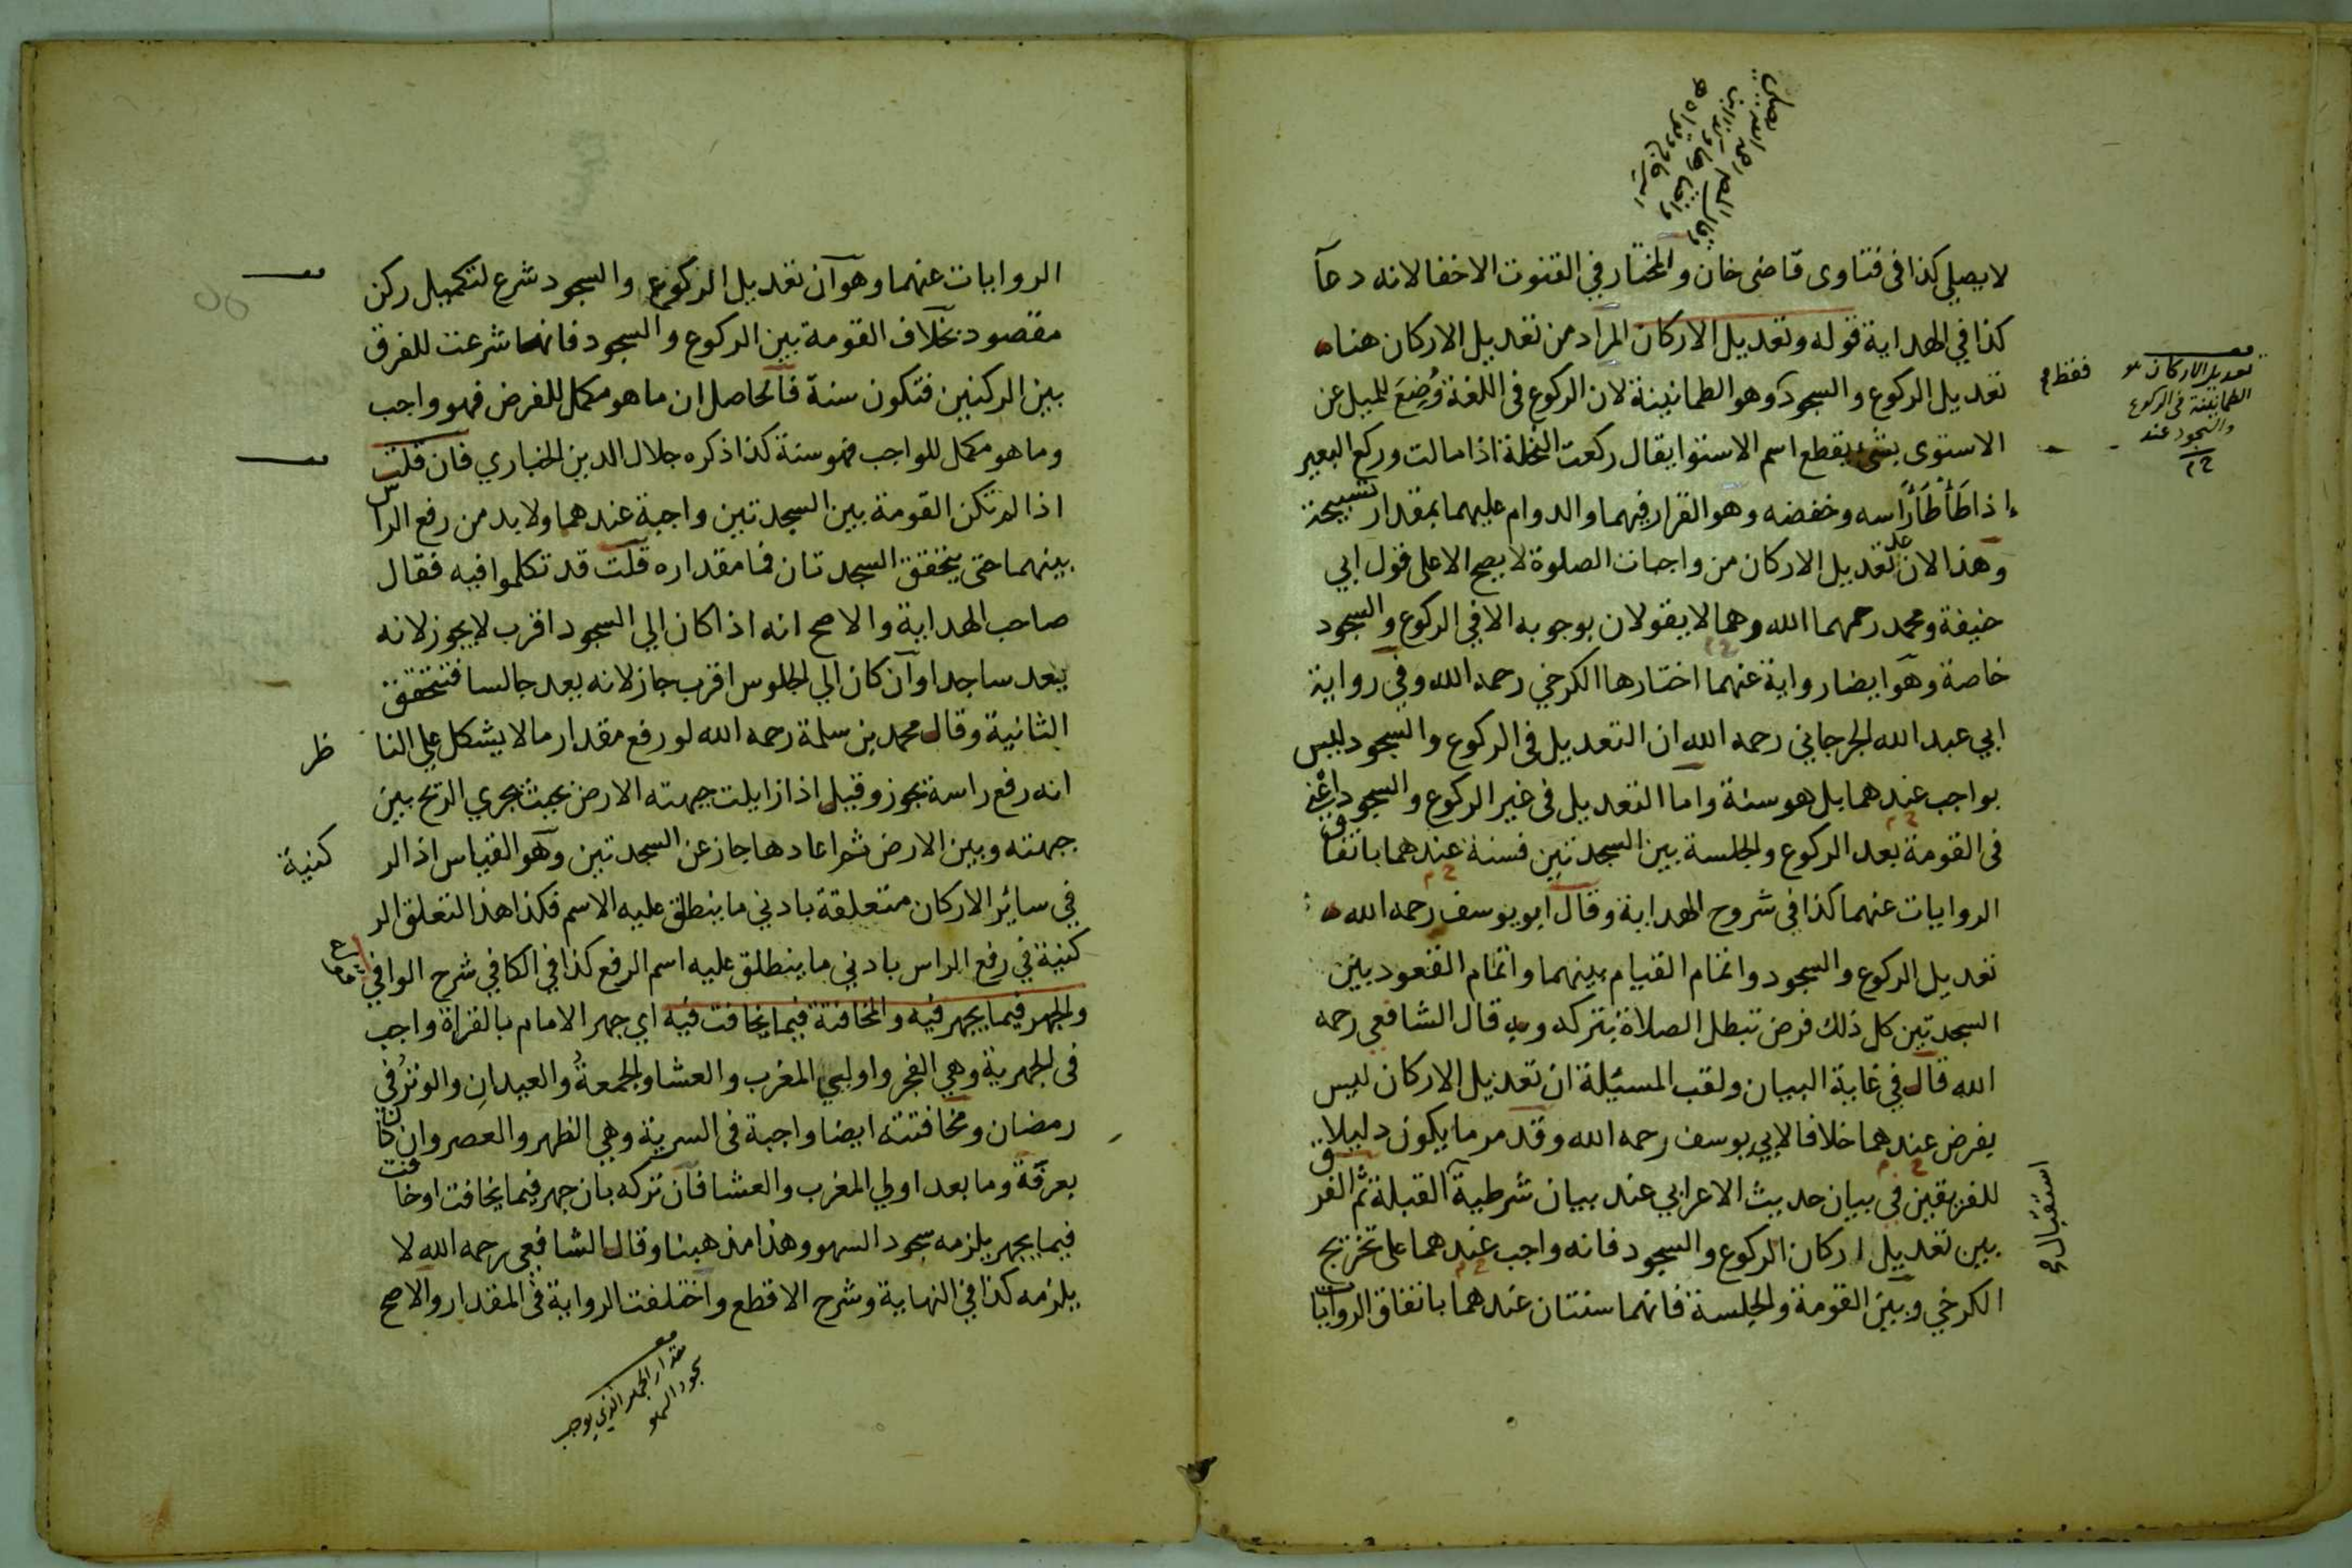 لا يصلي كذا في فتاوى قاضي خان والمختار في القنوت الاخفا لانه دعآ
كذا في الهداية قوله وتعديل الاركان المراد من تعديل الاركان هنا
تعديل الركوع والسجود وهو الطمانينة لان الركوع في اللغة وُضِعَ للميل عن
الاستوى بشيء يقطع اسم الاستوا يقال ركعت النخلة اذا مالت وركع البعير
إذا طَأْطَأَ رَاسه وخفضه وهو القرار فيهما والدوام عليهما بمقدار تسبيحة
وهذا لان عد تعديل الاركان من واجبات الصلوة لا يصح الا على قول ابي
حنيفة ومحمد رحمهما الله وهما لا يقولان بوجوبه الا في الركوع والسجود
خاصة وهو ايضا رواية عنهما اختارها الكرخي رحمه الله وفي رواية
ابي عبد الله الجرجاني رحمه الله ان التعديل في الركوع والسجود ليس
بواجب عندهما بل هو سنة واما التعديل في غير الركوع والسجود اعني
في القومة بعد الركوع والجلسة بين السجدتين فسنة عندهما باتفاق
الروايات عنهما كذا في شروح الهداية وقال ابو يوسف رحمه الله
تعديل الركوع والسجود واتمام القيام بينهما واتمام القعود بين
السجدتين كل ذلك فرض تبطل الصلاة بتركه وبه قال الشافعي رحمه
الله قال في غاية البيان ولقب المسئلة ان تعديل الاركان ليس
بفرض عندهما خلافا لابي يوسف رحمه الله وقد مر ما يكون دليلا
للفريقين في بيان حديث الاعرابي عند بيان شرطية القبلة ثم الفرق
بين تعديل اركان الركوع والسجود فانه واجب عندهما على تخريج
الكرخي وبين القومة والجلسة فانهما سنتان عندهما باتفاق الروايات
فقط
تعديل الاركان هو
الطمانينة في الركوع
والسجود عند
استقبال
الروايات عنهما وهو آن تعديل الركوع والسجود شرع لتكميل ركن
مقصود بخلاف القومة بين الركوع والسجود فانهما شرعت للفرق
بين الركنين فتكون سنة فالحاصل ان ما هو مكمل للفرض فهو واجب
وما هو مكمل للواجب فهو سنة كذا ذكره جلال الدين الخبازي فان قلت
اذا لم تكن القومة بين السجدتين واجبة عندهما ولا بد من رفع الراس
بينهما حتى يتحقق السجدتان فما مقداره قلت قد تكلموا فيه فقال
صاحب الهداية والاصح انه اذا كان الي السجود اقرب لا يجوز لانه
يعد ساجدا وآن كان الي الجلوس اقرب جاز لانه يعد جالسا فتتحقق
الثانية وقال محمد بن سلمة رحمه الله لو رفع مقدار ما لا يشكل علي النا
ظر
انه رفع راسه يجوز وقيل اذا زايلت جبهته الارض بحيث يجري الريح بين
جبهته وبين الارض ثم اعادها جاز عن السجدتين وهو القياس اذ الر
كنية
في سائر الاركان متعلقة بادني ما ينطلق عليه الاسم فكذا هذا التعلق الر
كنية في رفع الراس بادني ما ينطلق عليه اسم الرفع كذا في الكافي شرح الوافي
والجهر فيما يجهر فيه والمخافتة فيما يخافت فيه اي جهر الامام بالقراة واجب
في الجهرية وهي الفجر واوليي المغرب والعشا والجمعةُ والعيدانِ والوترُ في
رمضان ومخافتته ايضا واجبة في السرية وهي الظهر والعصر وان كان
بعرفة وما بعد اولي المغرب والعشا فان تركه بان جهر فيما يخافت او خافت
فيما يجهر يلزمه سجود السهو وهذا مذهبنا وقال الشافعي رحمه الله لا
يلزمه كذا في النهاية وشرح الاقطع واختلفت الرواية في المقدار والاصح
مقدار الجهر الذي يوجب
سجود السهو